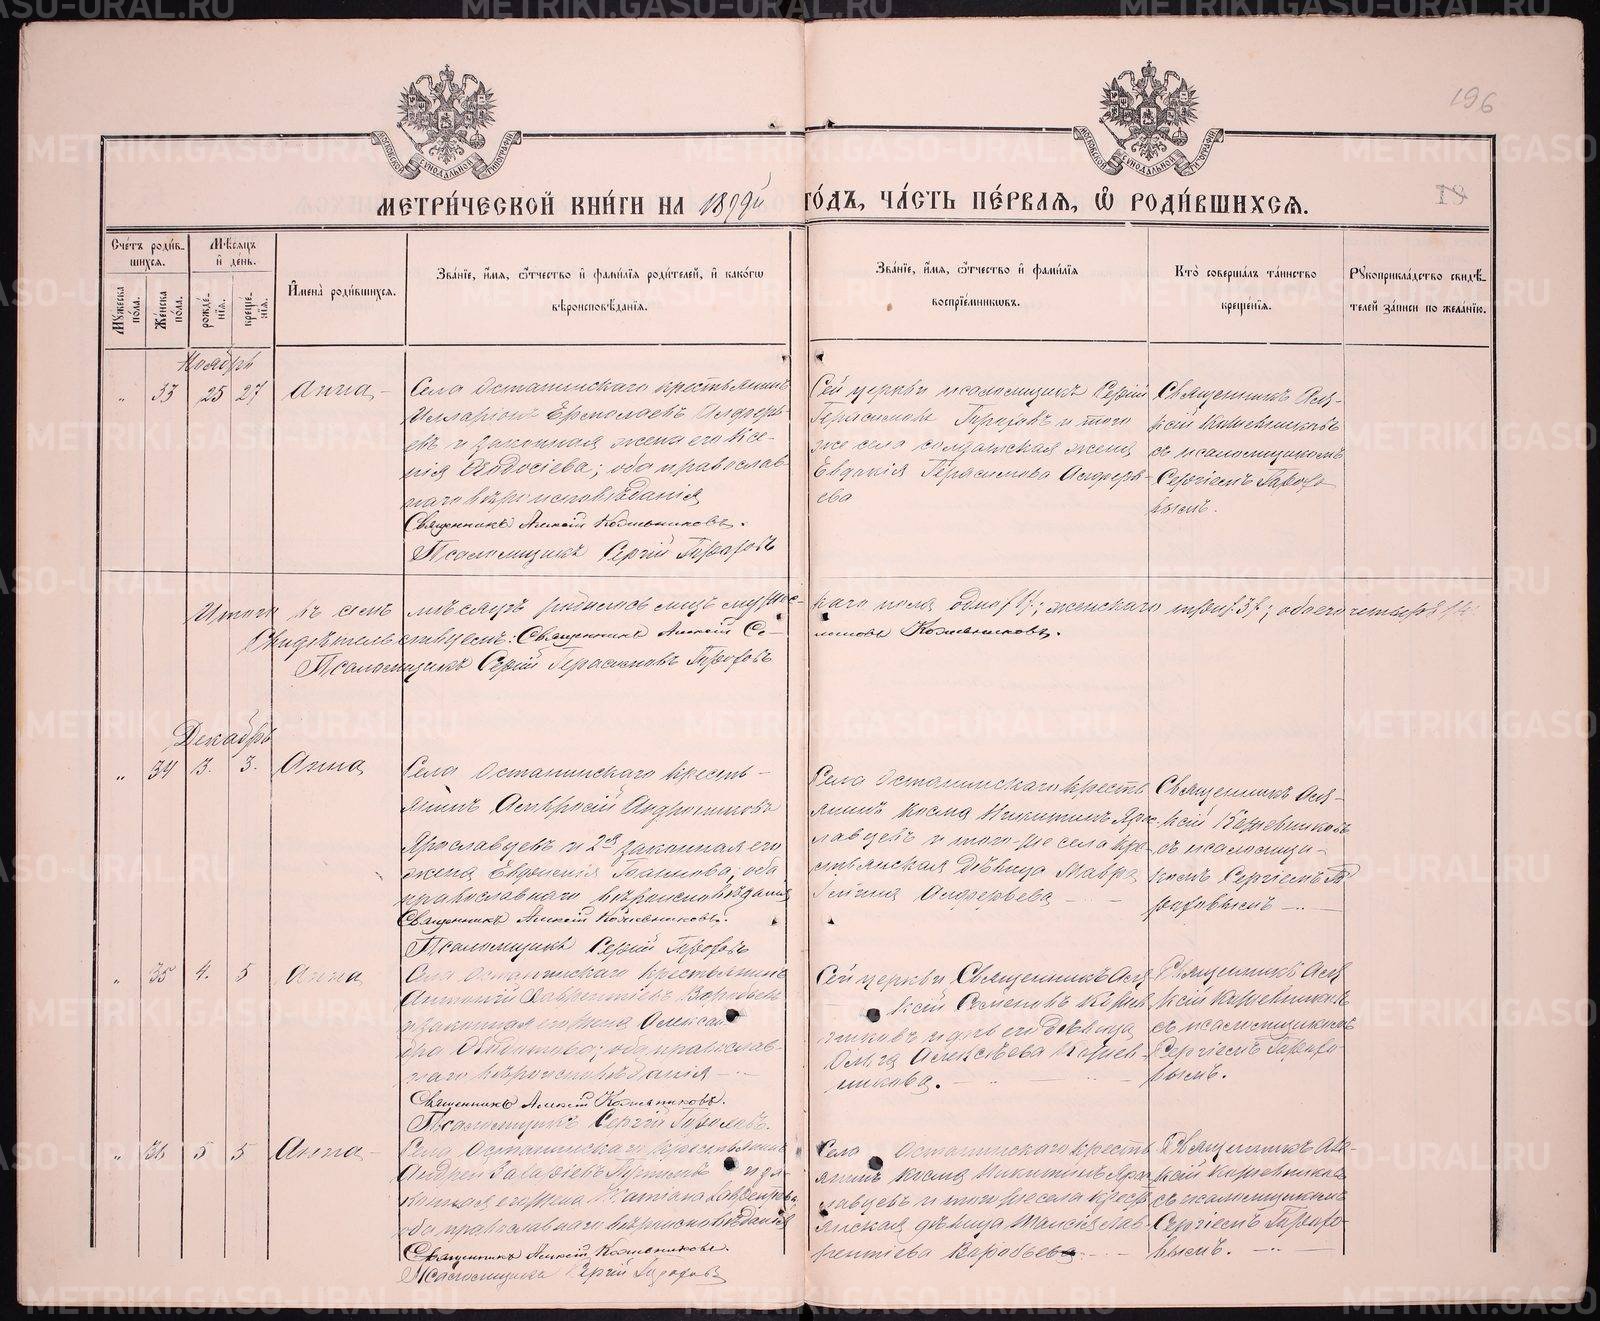 196
МОСКОВСКОЙ СѴНОДАЛЬНОЙ ТИПОГРАФІИ
МОСКОВСКОЙ СѴНОДАЛЬНОЙ ТИПОГРАФІИ
МЕТРИ́ЧЕСКОЙ КНИ́ГИ НА 1879й ГО́ДЪ, ЧА́СТЬ ПЕ́РВАЯ, Ѡ҆ РОДИ́ВШИХСЯ.
Сче́тъ роди́в-
шихся.
Мѣ́сяцъ
и҆ де́нь.
Мꙋ́жеска по́ла.
Же́нска по́ла.
рожде́-
нїя.
креще́-
нїя.
И҆мена̀ роди́вшихся.
Зва́нїе, и҆́мя, ѻ҆́тчество и҆ фами́лїя роди́телей, и҆ како́гѡ
вѣроисповѣ́данїя.
Зва́нїе, и҆́мя, ѻ҆́тчество и҆ фами́лїя
воспрїе́мниковъ.
Кто̀ соверша́лъ та́инство
креще́нїя.
Рꙋкоприкла́дство свидѣ́-
телей за́писи по жела́нїю.
Ноябрь
„ 33 25 27 Анна
Села Останинскаго крестьянинъ
Илларіонъ Ермолаевъ Алферь-
евъ и законная жена его Ксе-
нія Ѳеодосіева; оба православ-
наго вѣроисповѣданія
Священникъ Алексій Кожевниковъ.
Псаломщикъ Сергій
Сей церкви псаломщикъ Сергій
Герасимовъ и того
же села солдатская жена
Евдокія Герасимова Алферь-
ева
Священникъ Алек-
сій Кожевниковъ
съ псаломщикомъ
Сергіемъ
вымъ.
Итого въ семъ мѣсяцѣ родилось лицъ мужес-
каго пола одно /1/; женскаго три /3/; обоего четыре /4/
Свидѣтельствуемъ: Священникъ Алексій Се-
меновъ Кожевниковъ.
Псаломщикъ Сергій Герасимовъ
Декабрь
„ 34 3. 3. Анна
Села Останинскаго кресть-
янинъ Амвросій Андрониковъ
Ярославцевъ и 2я законная его
жена Евгенія; оба
православнаго вѣроисповѣданія
Священникъ Алексій Кожевниковъ.
Псаломщикъ Сергій
Села Останинскаго кресть-
янинъ Косма Никитинъ Яро-
славцевъ и того-же села кре-
стьянская дѣвица Мавра
Алферьева
Священникъ Алек-
сій Кожевниковъ
съ псаломщи-
комъ Сергіемъ
„ 35 4. 5 Анна
Села Останинскаго крестьянинъ
Антоній Лаврентіевъ Воробьевъ
и законная его жена Алексан-
дра; оба православ-
наго вѣроисповѣданія
Священникъ Алексій Кожевниковъ.
Псаломщикъ Сергій
Сей церкви Священникъ Алек-
сій Семеновъ Кожев-
никовъ и дочь его дѣвица
Ольга Алексѣева Кожев-
никова.
Священникъ Алек-
сій Кожевниковъ
съ псаломщикомъ
Сергіемъ
вымъ.
„ 36 5 5 Анна
Села Останинскаго крестьянинъ
Андрей и за-
конная его жена Лаврентіева,
оба православнаго вѣроисповѣданія
Священникъ Алексій Кожевниковъ.
Псаломщикъ Сергій
Села Останинскаго кресть-
янинъ Косма Никитинъ Яро-
славцевъ и того же села кресть-
янская дѣвица Таисія Лав-
рентіева Воробьева
Священникъ Алек-
сій Кожевниковъ
съ псаломщикомъ
Сергіемъ
вымъ.
METRIKI.GASO-URAL.RU